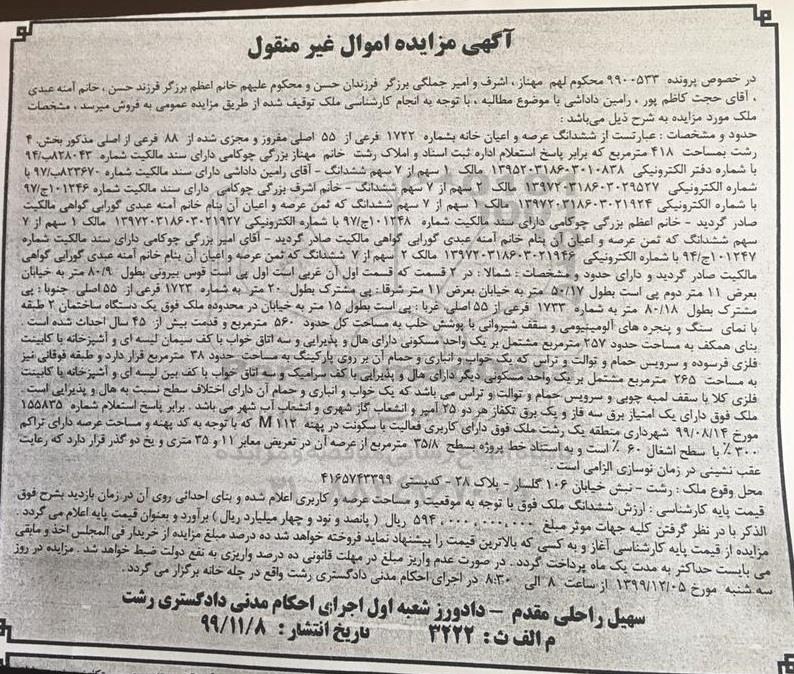 آگهی مزایده اموال غیر منقول
در خصوص پرونده ۹۹۰۰۵۳۳ محکوم لهم مهناز ، اشرف و امیر جملگی برزگر فرزندان حسن و محکوم علیهم خانم اعظم برزگر فرزند حسن ، خانم آمنه عبدی
، آقای حجت کاظم پور ، رامین داداشی با موضوع مطالبه ، با توجه به انجام کارشناسی ملک توقیف شده از طریق مزایده عمومی به فروش میرسد ، مشخصات
ملک مورد مزایده به شرح ذیل می‌باشد :
حدود و مشخصات : عبارتست از ششدانگ عرصه و اعیان خانه بشماره ۱۷۲۲ فرعی از ۵۵ اصلی مفروز و مجزی شده از ۸۸ فرعی از اصلی مذکور بخش ۴
رشت بمساحت ۴۱۸ مترمربع که برابر پاسخ استعلام اداره ثبت اسناد و املاک رشت خانم مهناز بزرگی چوکامی دارای سند مالکیت شماره ۸۲۸۰۴۳ب/۹۴
با شماره دفتر الکترونیکی ۱۳۹۵۲۰۳۱۸۶۰۳۰۱۰۸۳۸ مالک ۱ سهم از ۷ سهم ششدانگ - آقای رامین داداشی دارای سند مالکیت شماره ۸۲۳۶۷۰ب/۹۷ با
شماره الکترونیکی ۱۳۹۷۲۰۳۱۸۶۰۳۰۲۹۵۲۷ مالک ۲ سهم از ۷ سهم ششدانگ - خانم اشرف بزرگی چوکامی دارای سند مالکیت شماره ۱۰۱۲۴۶ج/۹۷
با شماره الکترونیکی ۱۳۹۷۲۰۳۱۸۶۰۳۰۲۱۹۲۴ مالک ۱ سهم از ۷ سهم ششدانگ که ثمن عرصه و اعیان آن بنام خانم آمنه عبدی گورابی گواهی مالکیت
صادر گردید - خانم اعظم بزرگی چوکامی دارای سند مالکیت شماره ۱۰۱۲۴۸ج/۹۷ با شماره الکترونیکی ۱۳۹۷۲۰۳۱۸۶۰۳۰۲۱۹۲۷ مالک ۱ سهم از ۷
سهم ششدانگ که ثمن عرصه و اعیان آن بنام خانم آمنه عبدی گورابی گواهی مالکیت صادر گردید - آقای امیر بزرگی چوکامی دارای سند مالکیت شماره
۱۰۱۲۴۷ج/۹۴ با شماره الکترونیکی ۱۳۹۷۲۰۳۱۸۶۰۳۰۲۱۹۴۶ مالک ۲ سهم از ۷ ششدانگ که ثمن عرصه و اعیان آن بنام خانم آمنه عبدی گورابی گواهی
مالکیت صادر گردید و دارای حدود و مشخصات : شمالا : در ۲ قسمت که قسمت اول آن غربی است اول پی است قوس بیرونی بطول ۸۰/۹ متر به خیابان
بعرض ۱۱ متر دوم پی است بطول ۵۰/۱۷ متر به خیابان بعرض ۱۱ متر شرقا : پی مشترک بطول ۲۰ متر به شماره ۱۷۲۳ فرعی از ۵۵ اصلی جنوبا : پی
مشترک بطول ۸۰/۱۸ متر به شماره ۱۷۳۳ فرعی از ۵۵ اصلی غربا : پی است بطول ۱۵ متر به خیابان در محدوده ملک فوق یک دستگاه ساختمان ۲ طبقه
با نمای سنگ و پنجره های آلومینیومی و سقف شیروانی با پوشش حلب به مساحت کل حدود ۵۶۰ مترمربع و قدمت بیش از ۴۵ سال احداث شده است
بنای همکف به مساحت حدود ۲۵۷ مترمربع مشتمل بر یک واحد مسکونی دارای هال و پذیرایی و سه اتاق خواب با کف سیمان لیسه ای و آشپزخانه با کابینت
فلزی فرسوده و سرویس حمام و توالت و تراس که یک خواب و انباری و حمام آن بر روی پارکینگ به مساحت حدود ۳۸ مترمربع قرار دارد و طبقه فوقانی نیز
به مساحت ۲۶۵ مترمربع مشتمل بر یک واحد مسکونی دیگر دارای هال و پذیرایی با کف سرامیک و سه اتاق خواب با کف بین لیسه ای و آشپزخانه با کابینت
فلزی کلا با سقف لمبه چوبی و سرویس حمام و توالت و تراس می باشد که یک خواب و انباری و حمام آن دارای اختلاف سطح نسبت به هال و پذیرایی است
ملک فوق دارای یک امتیاز برق سه فاز و یک برق تکفاز هر دو ۲۵ آمپر و انشعاب گاز شهری و انشعاب آب شهر می باشد . برابر پاسخ استعلام شماره ۱۵۵۸۳۵
مورخ ۹۹/۰۸/۱۴ شهرداری منطقه یک رشت ملک فوق دارای کاربری فعالیت با سکونت در پهنه M۱۱۲ که با توجه به کد پهنه و مساحت عرصه دارای تراکم
۳۰۰ ٪ با سطح اشغال ۶۰ ٪ است و به استناد خط پروژه بسطح ۳۵/۸ مترمربع از عرصه آن در تعریض معابر ۱۱ و ۳۵ متری و پخ دو گذر قرار دارد که رعایت
عقب نشینی در زمان نوسازی الزامی است .
محل وقوع ملک : رشت - نبش خیابان ۱۰۶ گلسار - پلاک ۲۸ - کدپستی ۴۱۶۵۷۴۳۳۹۹
قیمت پایه کارشناسی : ارزش ششدانگ ملک فوق با توجه به موقعیت و مساحت عرصه و کاربری اعلام شده و بنای احداثی روی آن در زمان بازدید بشرح فوق
الذکر با در نظر گرفتن کلیه جهات موثر مبلغ ۵۹۴,۰۰۰,۰۰۰,۰۰۰ ریال ( پانصد و نود و چهار میلیارد ریال ) برآورد و بعنوان قیمت پایه اعلام می گردد .
مزایده از قیمت پایه کارشناسی آغاز و به کسی که بالاترین قیمت را پیشنهاد نماید فروخته خواهد شد ده درصد مبلغ مزایده از خریدار فی المجلس اخذ و مابقی
می بایست حداکثر به مدت یک ماه پرداخت گردد . در صورت عدم واریز مبلغ در مهلت قانونی ده درصد واریزی به نفع دولت ضبط خواهد شد . مزایده در روز
سه شنبه مورخ ۱۳۹۹/۱۲/۰۵ از ساعت ۸ الی ۸:۳۰ در اجرای احکام مدنی دادگستری رشت واقع در چله خانه برگزار می گردد .
سهیل راحلی مقدم - دادورز شعبه اول اجرای احکام مدنی دادگستری رشت
م الف ث : ۳۲۲۲ تاریخ انتشار : ۹۹/۱۱/۸